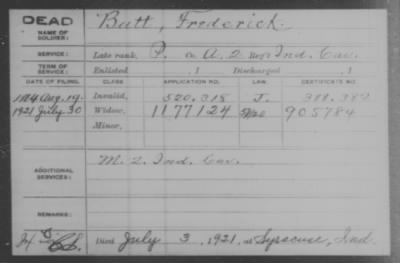 DEAD
NAME OF SOLDIER: Butt, Frederick.
SERVICE: Late rank, P. Co. A, 2 Reg't Ind. Cav.
TERM OF SERVICE: Enlisted , 1 Discharged , 1
DATE OF FILING. CLASS. APPLICATION NO. LAW. CERTIFICATE NO.
Aug. 19. Invalid, 520.318 J.
1921 July 30 Widow, 1177124 905784
Minor,
ADDITIONAL SERVICES: M. 2. Ind. Cav.
REMARKS:
Died July 3, 1921, at Syracuse, Ind.